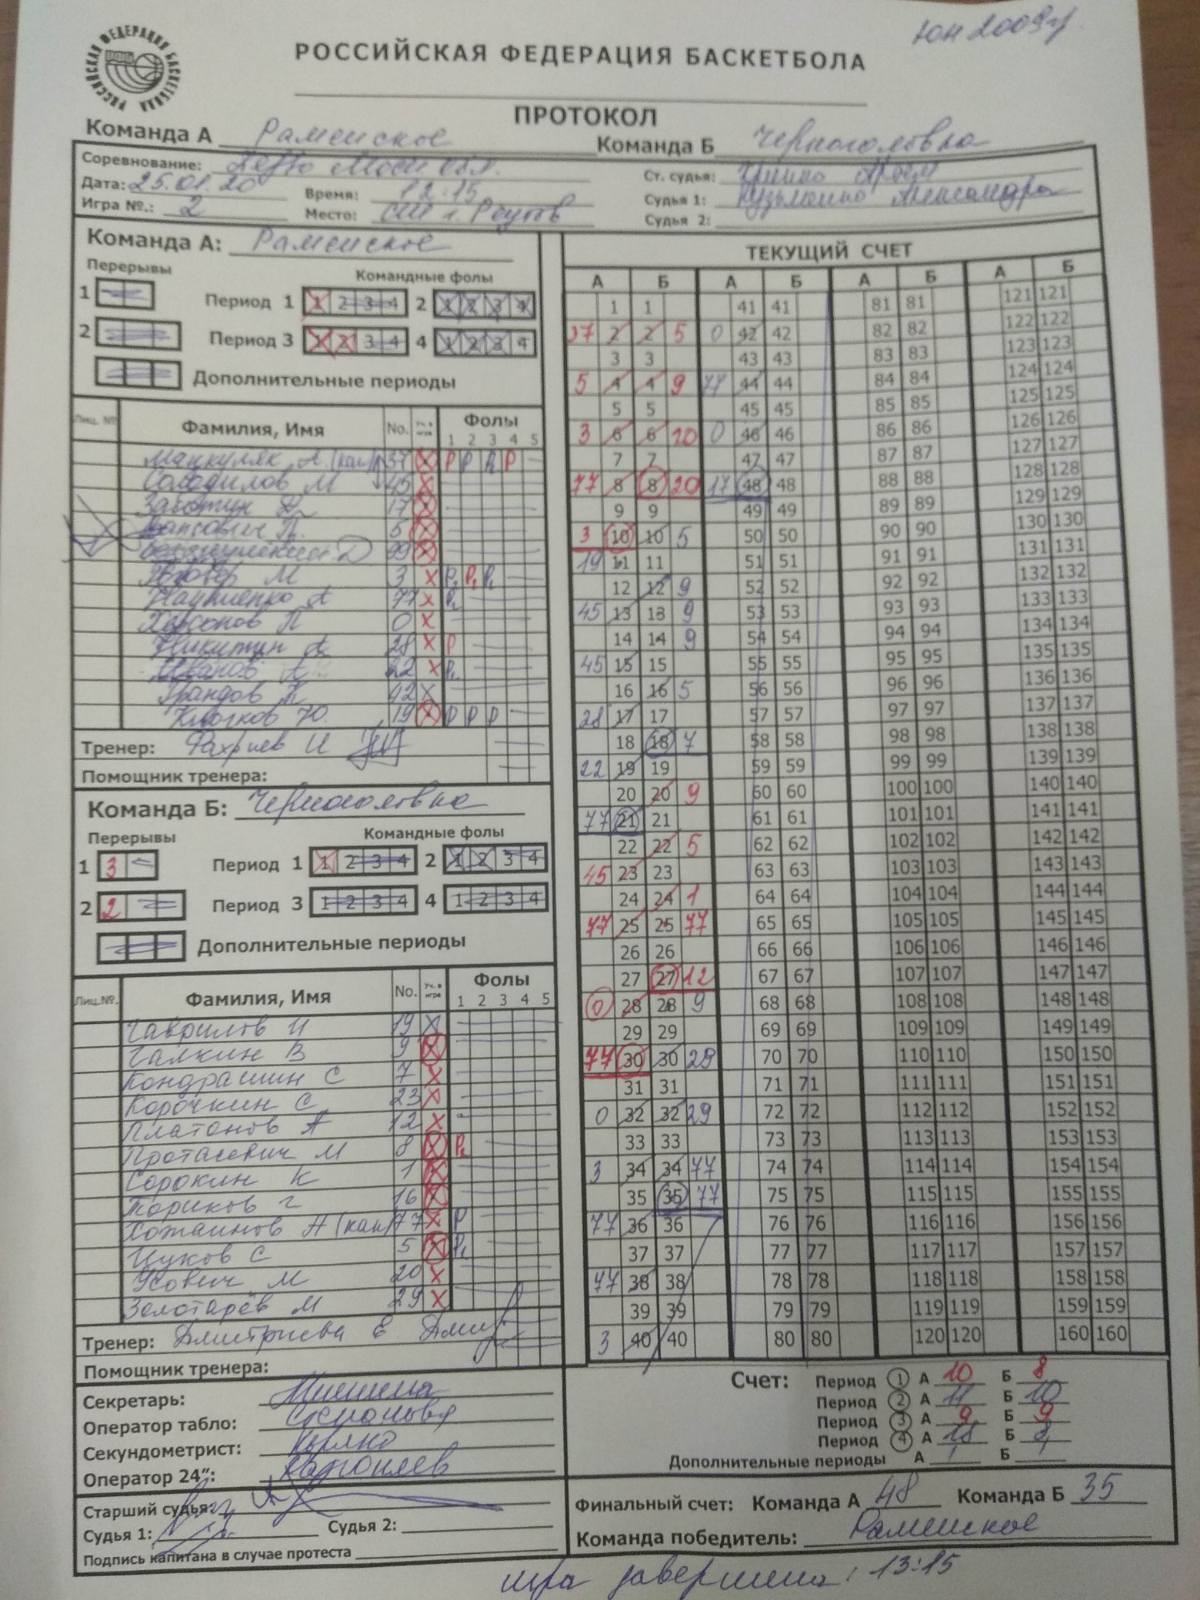 Юн 2009г.
РОССИЙСКАЯ ФЕДЕРАЦИЯ БАСКЕТБОЛА
ПРОТОКОЛ
Команда А Раменское Команда Б Черноголовка
Соревнование: Моск обл. Ст. судья:
Дата: 25.01.20 Время: 12:15 Судья 1: Александра
Игра №.: 2 Место: СШ г. Реутов Судья 2:
Команда А: Раменское
Перерывы Командные фолы
1 Период 1 1 2 3 4 2 1 2 3 4
2 Период 3 1 2 3 4 4 1 2 3 4
Дополнительные периоды
Лиц. № Фамилия, Имя No. Уч. в игре Фолы
1 2 3 4 5
А. (кап) 37 X P P P P
М 45 X
17 X
П. 5 X
Д 99 X
М 3 X
Науменко А 77 X
П 0 X
Никитин А 28 X P
Иванов А 22 X
42 X
Клочков Ю. 19 X P P P
Тренер: Фахриев И
Помощник тренера:
Команда Б: Черноголовка
Перерывы Командные фолы
1 3 Период 1 1 2 3 4 2 1 2 3 4
2 2 Период 3 1 2 3 4 4 1 2 3 4
Дополнительные периоды
Лиц.№. Фамилия, Имя No. Уч. в игре Фолы
1 2 3 4 5
Гаврилов И 19 X
Галкин В 9 X
Кондрашин С 7 X
Корочкин С 23 X
Платонов А 12 X
Протасевич М 8 X
Сорокин К 1 X
Ториков Г 16 X
Хожаинов А (кап) 77 X P
Цуков С 5 X
Усович М 20 X
Золотарёв М 29 X
Тренер: Дмитриева Е
Помощник тренера:
Секретарь:
Оператор табло:
Секундометрист:
Оператор 24":
Старший судья:
Судья 1: Судья 2:
Подпись капитана в случае протеста
ТЕКУЩИЙ СЧЕТ
А Б А Б А Б А Б
1 1 41 41 81 81 121 121
37 2 2 5 0 42 42 82 82 122 122
3 3 43 43 83 83 123 123
5 4 4 9 77 44 44 84 84 124 124
5 5 45 45 85 85 125 125
3 6 6 20 0 46 46 86 86 126 126
7 7 47 47 87 87 127 127
77 8 8 20 17 48 48 88 88 128 128
9 9 49 49 89 89 129 129
3 10 10 5 50 50 90 90 130 130
19 11 11 51 51 91 91 131 131
12 12 9 52 52 92 92 132 132
45 13 13 9 53 53 93 93 133 133
14 14 9 54 54 94 94 134 134
45 15 15 55 55 95 95 135 135
16 16 5 56 56 96 96 136 136
28 17 17 57 57 97 97 137 137
18 18 7 58 58 98 98 138 138
22 19 19 59 59 99 99 139 139
20 20 9 60 60 100 100 140 140
77 21 21 61 61 101 101 141 141
22 22 5 62 62 102 102 142 142
45 23 23 63 63 103 103 143 143
24 24 1 64 64 104 104 144 144
77 25 25 77 65 65 105 105 145 145
26 26 66 66 106 106 146 146
27 27 12 67 67 107 107 147 147
0 28 28 9 68 68 108 108 148 148
29 29 69 69 109 109 149 149
77 30 30 29 70 70 110 110 150 150
31 31 71 71 111 111 151 151
0 32 32 29 72 72 112 112 152 152
33 33 73 73 113 113 153 153
3 34 34 77 74 74 114 114 154 154
35 35 77 75 75 115 115 155 155
77 36 36 76 76 116 116 156 156
37 37 77 77 117 117 157 157
77 38 38 78 78 118 118 158 158
39 39 79 79 119 119 159 159
3 40 40 80 80 120 120 160 160
Счет: Период 1 А 10 Б 8
Период 2 А 11 Б 10
Период 3 А 9 Б 9
Период 4 А 18 Б 8
Дополнительные периоды А Б
Финальный счет: Команда А 48 Команда Б 35
Команда победитель: Раменское
игра завершена: 13:15